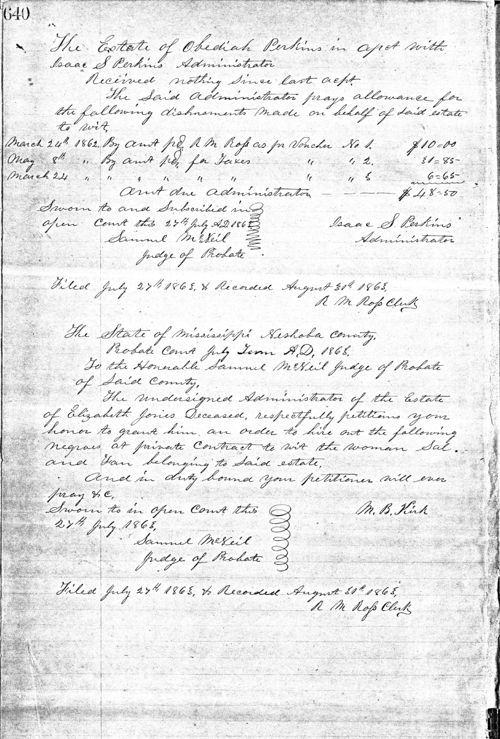 640
The Estate of Obediah Perkins in acpt with
Isaac S Perkins Administrator
Received nothing since last acpt
The Said Administrator prays allowance for
the following disbursments made on behalf of said estate
to wit,
March 24th 1862, By amt pd R M Ross as pr Voucher No 1. $10=00
May 8th " By amt pd for Taxes " " 2. 31=85
March 24 " " " " " " " 3 6=65
Amt due administrator $48-50
Sworn to and Subscribed in
open Court this 27th July A.D. 1863
Isaac S Perkins
Samuel McNeil
Administrator
Judge of Probate
Filed July 27th 1863, & Recorded August 31st 1863,
R M Ross Clerk
The State of Mississippi Neshoba County,
Probate Court July Term A.D, 1863,
To the Honerable Samuel McNeil Judge of Probate
of Said County,
The undersigned Administrator of the Estate
of Elizabeth Jones Deceased, respectfully petitions your
honor to grant him an order to hire out the following
negroes at private Contract to wit the woman Sal.
and Fan belonging to Said estate,
And in duty bound your petitioner will ever
pray &c,
Sworn to in open Court this
M. B. Kirk
27th July 1863,
Samuel McNeil
Judge of Probate
Filed July 27th 1863, & Recorded August 31st 1863,
R M Ross Clerk